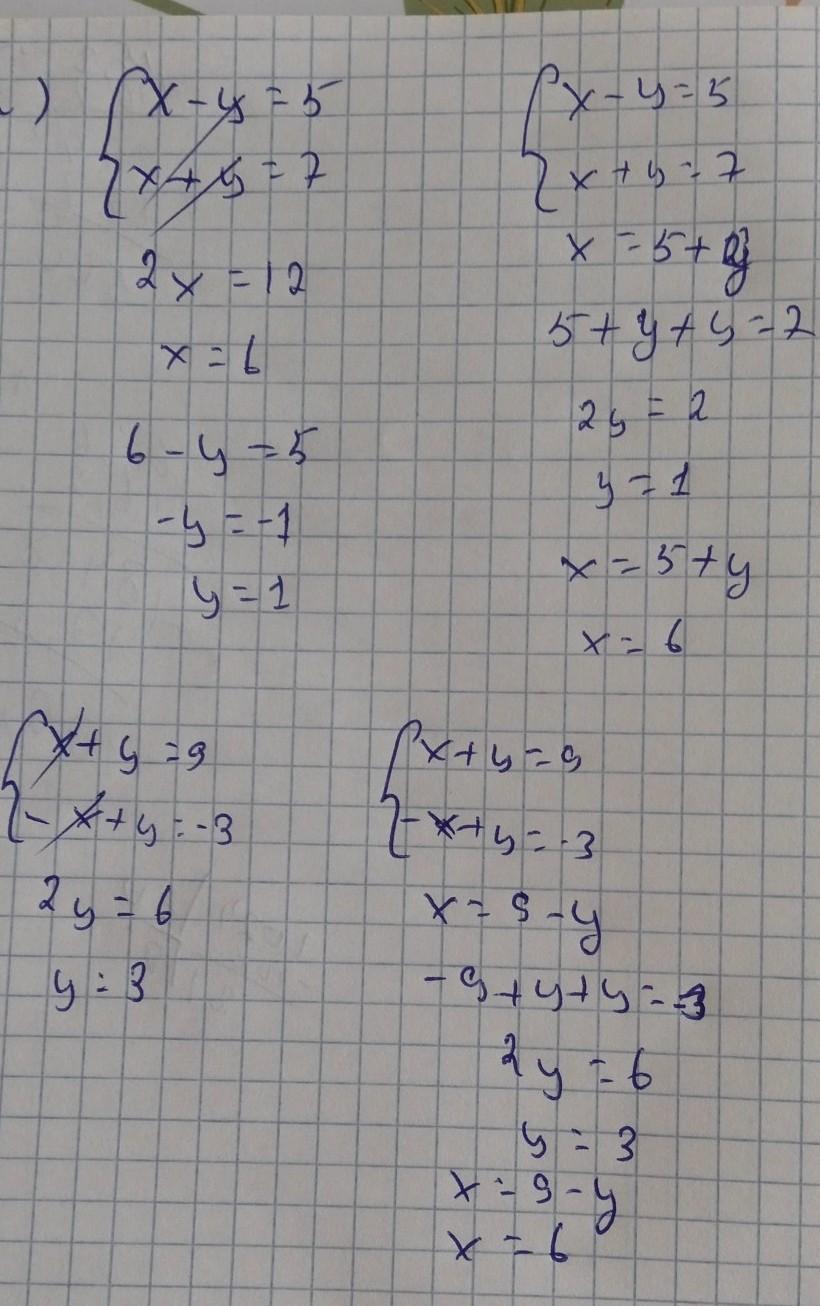 ) { x - y = 5
x + y = 7
2x = 12
x = 6
6 - y = 5
-y = -1
y = 1
{ x - y = 5
x + y = 7
x = 5 + y
5 + y + y = 7
2y = 2
y = 1
x = 5 + y
x = 6
{ x + y = 9
- x + y = -3
2y = 6
y = 3
{ x + y = 9
- x + y = -3
x = 9 - y
-9 + y + y = -3
2y = 6
y = 3
x = 9 - y
x = 6